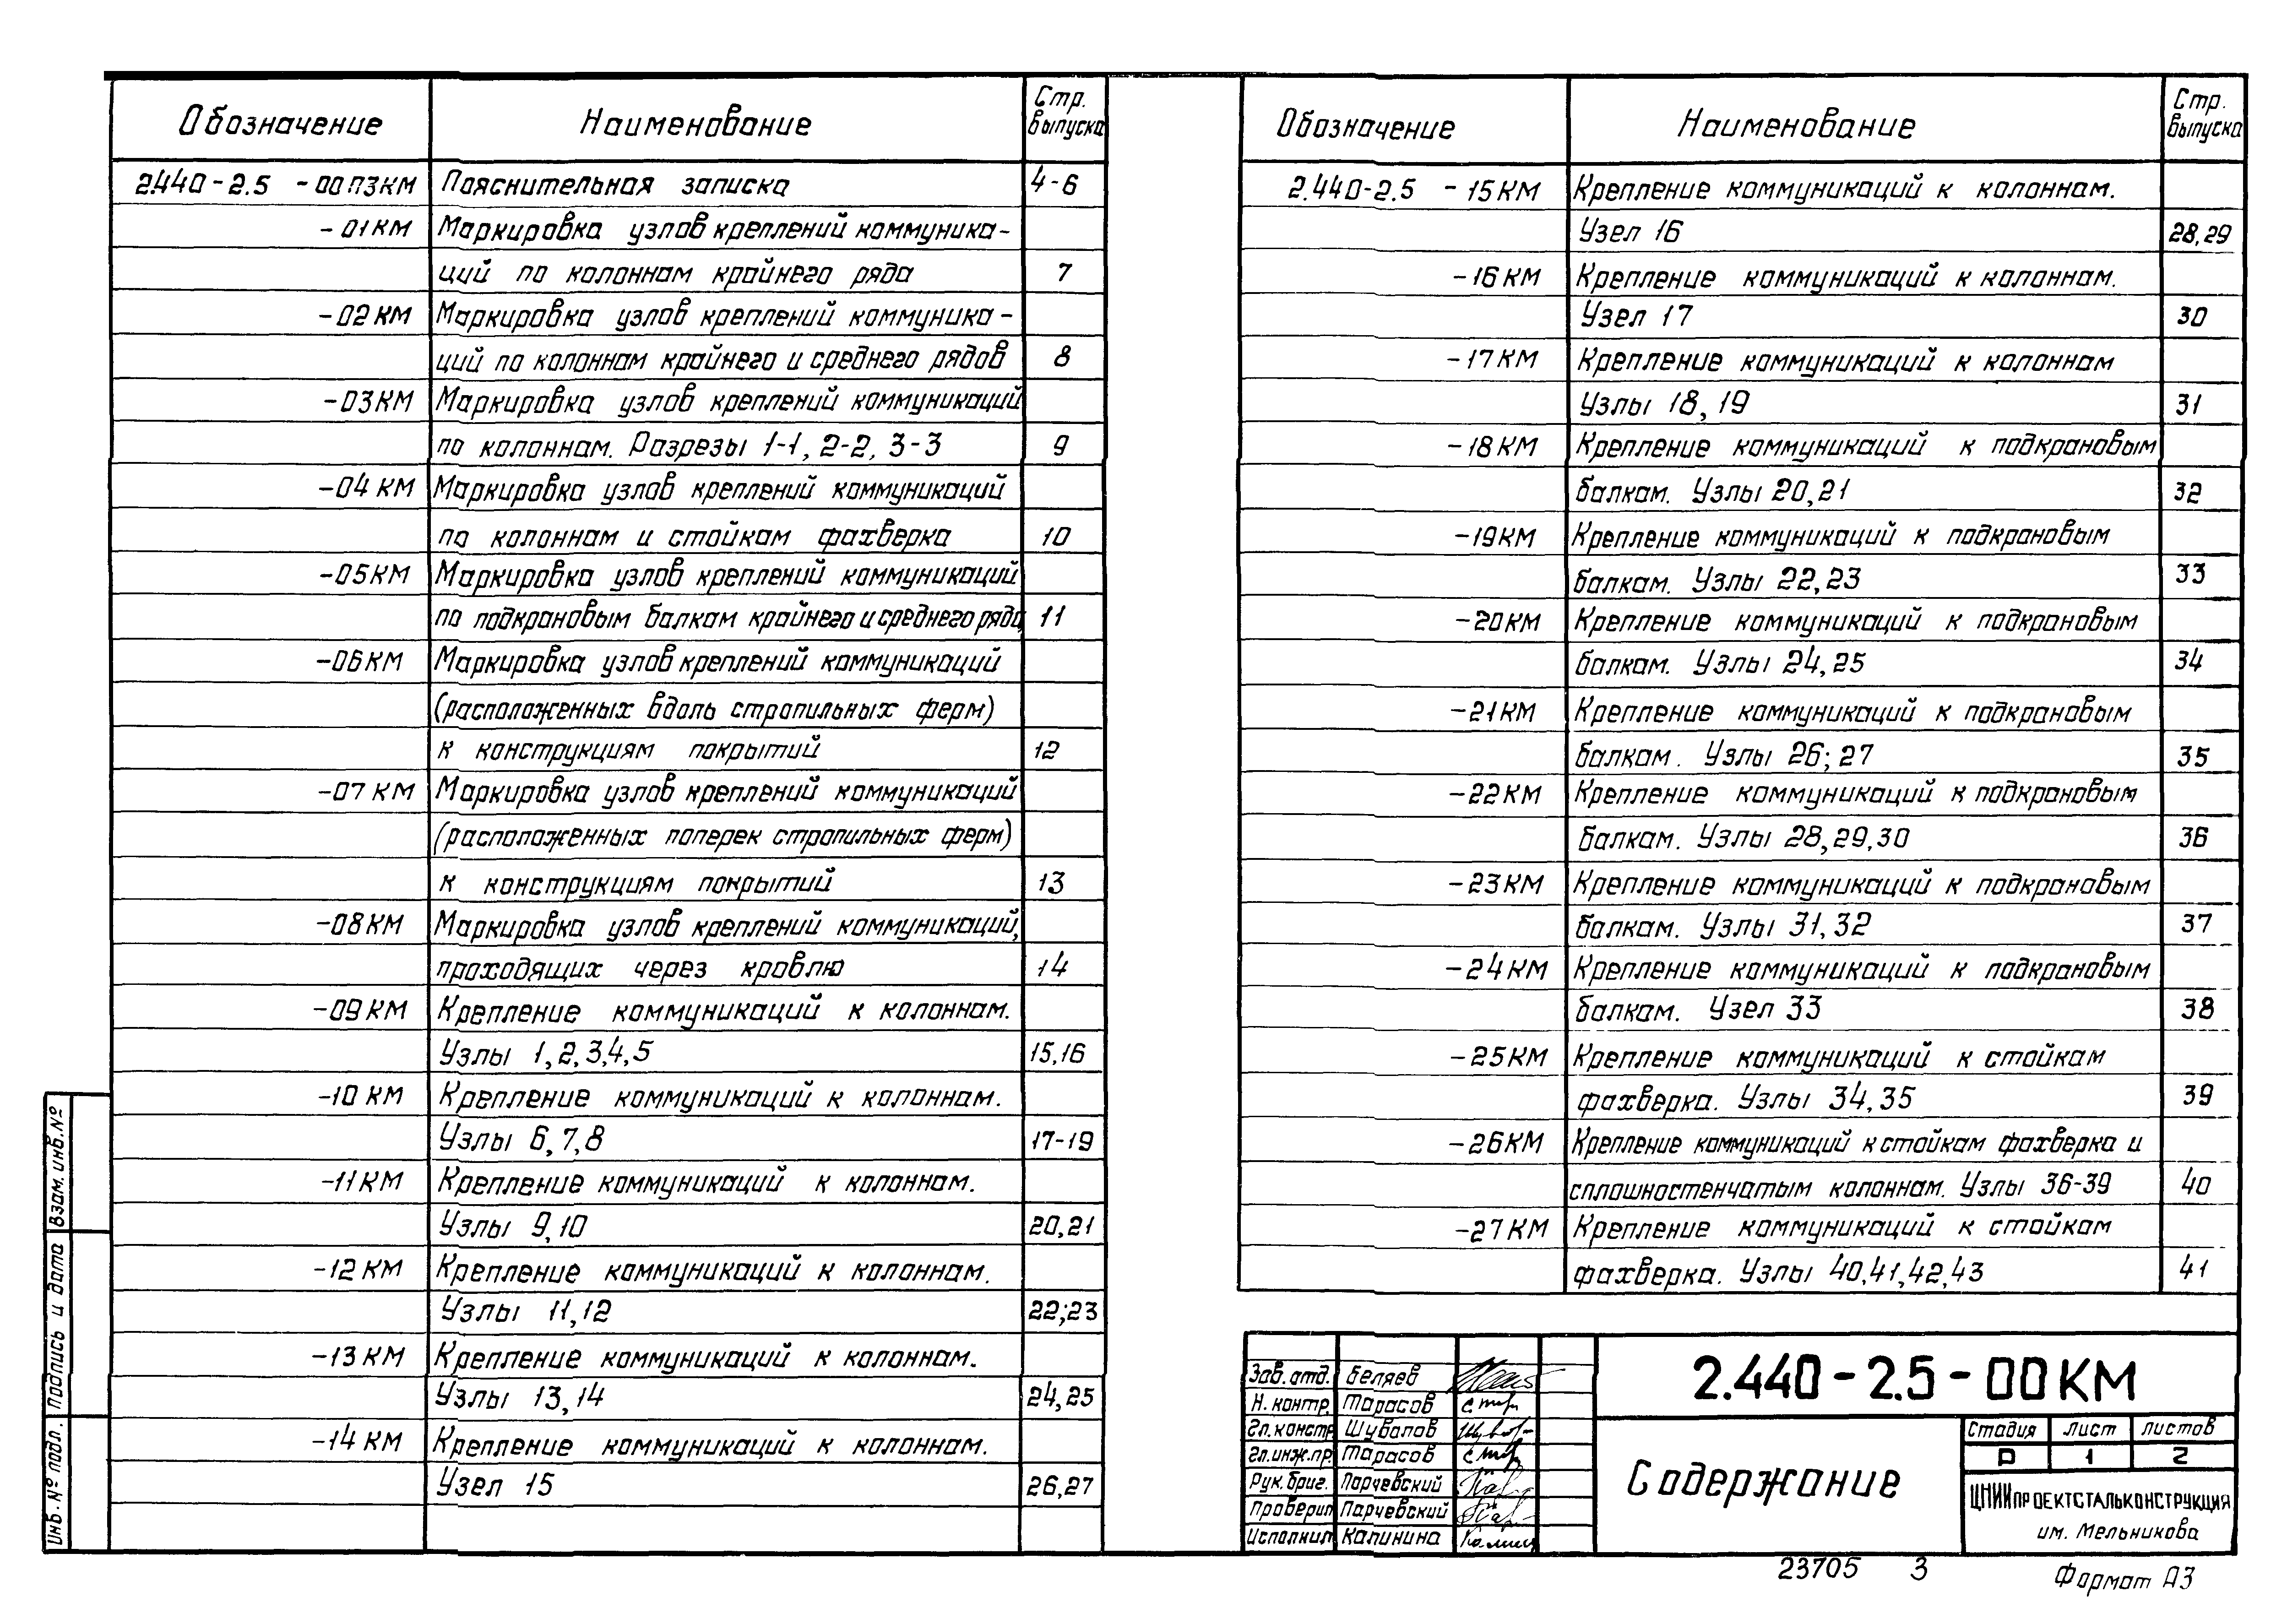 Обозначение Наименование Стр. выпуска
2.440-2.5 -00ПЗКМ Пояснительная записка 4-6
-01КМ Маркировка узлов креплений коммуника-
ций по колоннам крайнего ряда 7
-02КМ Маркировка узлов креплений коммуника-
ций по колоннам крайнего и среднего рядов 8
-03КМ Маркировка узлов креплений коммуникаций
по колоннам. Разрезы 1-1, 2-2, 3-3 9
-04КМ Маркировка узлов креплений коммуникаций
по колоннам и стойкам фахверка 10
-05КМ Маркировка узлов креплений коммуникаций
по подкрановым балкам крайнего и среднего ряда 11
-06КМ Маркировка узлов креплений коммуникаций
(расположенных вдоль стропильных ферм)
к конструкциям покрытий 12
-07КМ Маркировка узлов креплений коммуникаций
(расположенных поперек стропильных ферм)
к конструкциям покрытий 13
-08КМ Маркировка узлов креплений коммуникаций,
проходящих через кровлю 14
-09КМ Крепление коммуникаций к колоннам.
Узлы 1,2,3,4,5 15,16
-10КМ Крепление коммуникаций к колоннам.
Узлы 6,7,8 17-19
-11КМ Крепление коммуникаций к колоннам.
Узлы 9,10 20,21
-12КМ Крепление коммуникаций к колоннам.
Узлы 11,12 22;23
-13КМ Крепление коммуникаций к колоннам.
Узлы 13,14 24,25
-14КМ Крепление коммуникаций к колоннам.
Узел 15 26,27
Обозначение Наименование Стр. выпуска
2.440-2.5 -15КМ Крепление коммуникаций к колоннам.
Узел 16 28,29
-16КМ Крепление коммуникаций к колоннам.
Узел 17 30
-17КМ Крепление коммуникаций к колоннам
Узлы 18,19 31
-18КМ Крепление коммуникаций к подкрановым
балкам. Узлы 20,21 32
-19КМ Крепление коммуникаций к подкрановым
балкам. Узлы 22,23 33
-20КМ Крепление коммуникаций к подкрановым
балкам. Узлы 24,25 34
-21КМ Крепление коммуникаций к подкрановым
балкам. Узлы 26;27 35
-22КМ Крепление коммуникаций к подкрановым
балкам. Узлы 28,29,30 36
-23КМ Крепление коммуникаций к подкрановым
балкам. Узлы 31,32 37
-24КМ Крепление коммуникаций к подкрановым
балкам. Узел 33 38
-25КМ Крепление коммуникаций к стойкам
фахверка. Узлы 34,35 39
-26КМ Крепление коммуникаций к стойкам фахверка и
сплошностенчатым колоннам. Узлы 36-39 40
-27КМ Крепление коммуникаций к стойкам
фахверка. Узлы 40,41,42,43 41
Инв. № подл. Подпись и дата Взам. инв. №
Зав. отд. Беляев
Н. контр. Тарасов
Гл. констр Шувалов
Гл. инж. пр. Тарасов
Рук. бриг. Парчевский
Проверил Парчевский
Исполнил Калинина
2.440-2.5-00КМ
Содержание
Стадия Лист Листов
Р 1 2
ЦНИИпроектстальконструкция
им. Мельникова
23705 3
Формат А3